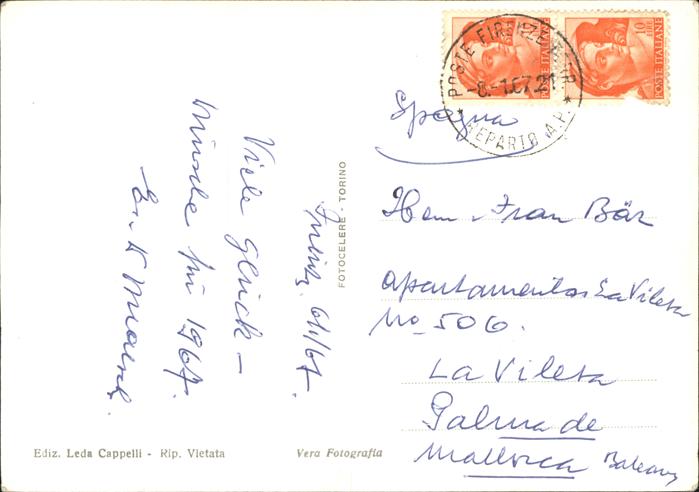 10
LIRE
POSTE ITALIANE
POSTE ITALIANE
POSTE FIRENZE
-8.-1.67.21
REPARTO A.P.
Spagna
Herrn u. Frau Bär
Apartamentos La Vileta
No 506.
La Vileta
Palma de
Mallorca
61/1/67.
Viele Glück-
Wünsche für 1967.
FOTOCELERE - TORINO
Ediz. Leda Cappelli - Rip. Vietata
Vera Fotografia